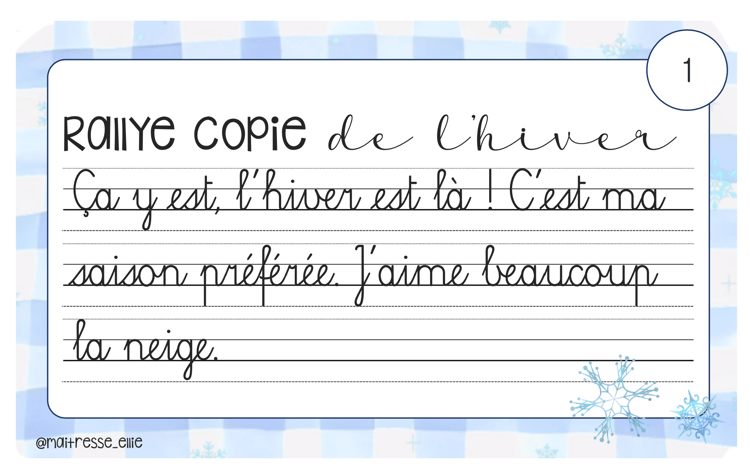 1
Rallye copie de l'hiver
Ça y est, l'hiver est là ! C'est ma
saison préférée. J'aime beaucoup
la neige.
@maitresse_ellie